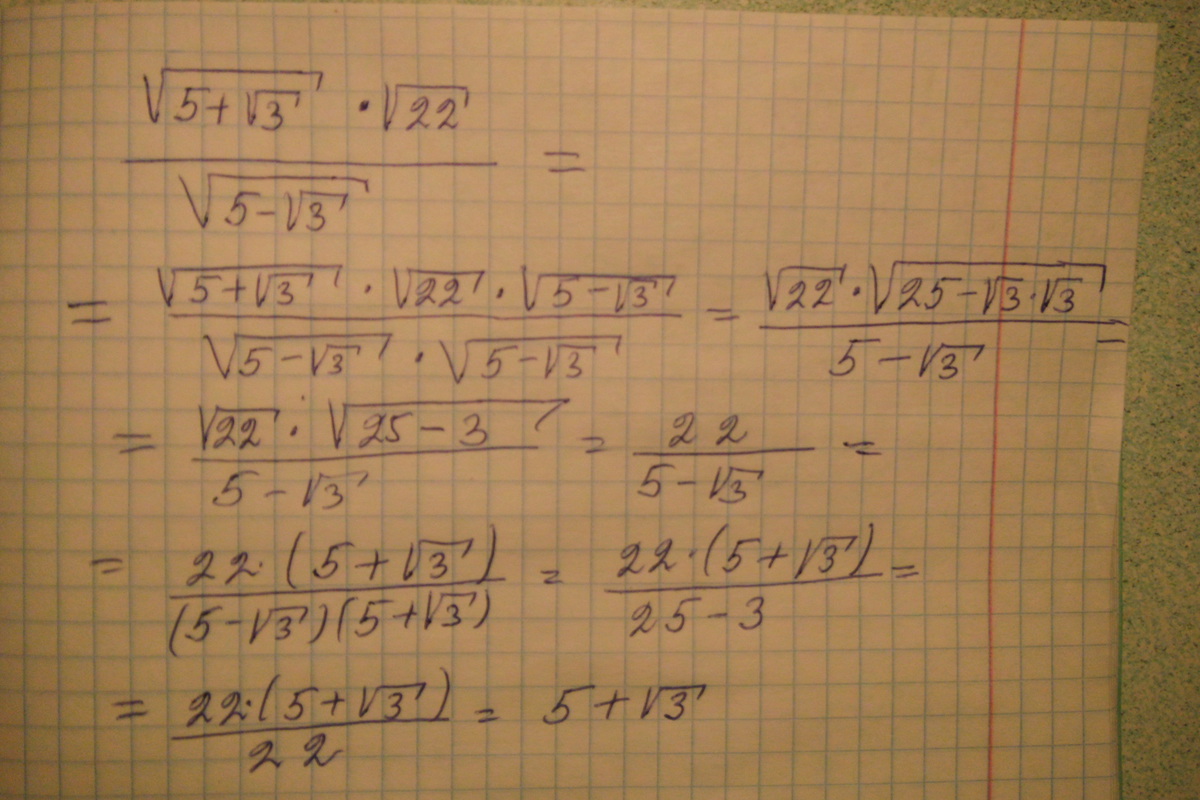 (√(5+√3) · √22) / √(5−√3) =
= (√(5+√3) · √22 · √(5−√3)) / (√(5−√3) · √(5−√3)) = (√22 · √(25−√3·√3)) / (5−√3) =
= (√22 · √(25−3)) / (5−√3) = 22 / (5−√3) =
= (22·(5+√3)) / ((5−√3)(5+√3)) = (22·(5+√3)) / (25−3) =
= (22·(5+√3)) / 22 = 5+√3